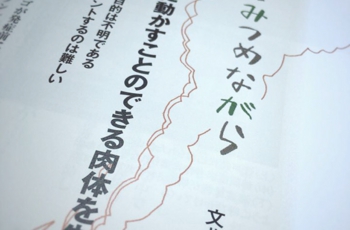 みつめながら
文
動かすことのできる肉体を
目的は不明である
ントするのは難しい